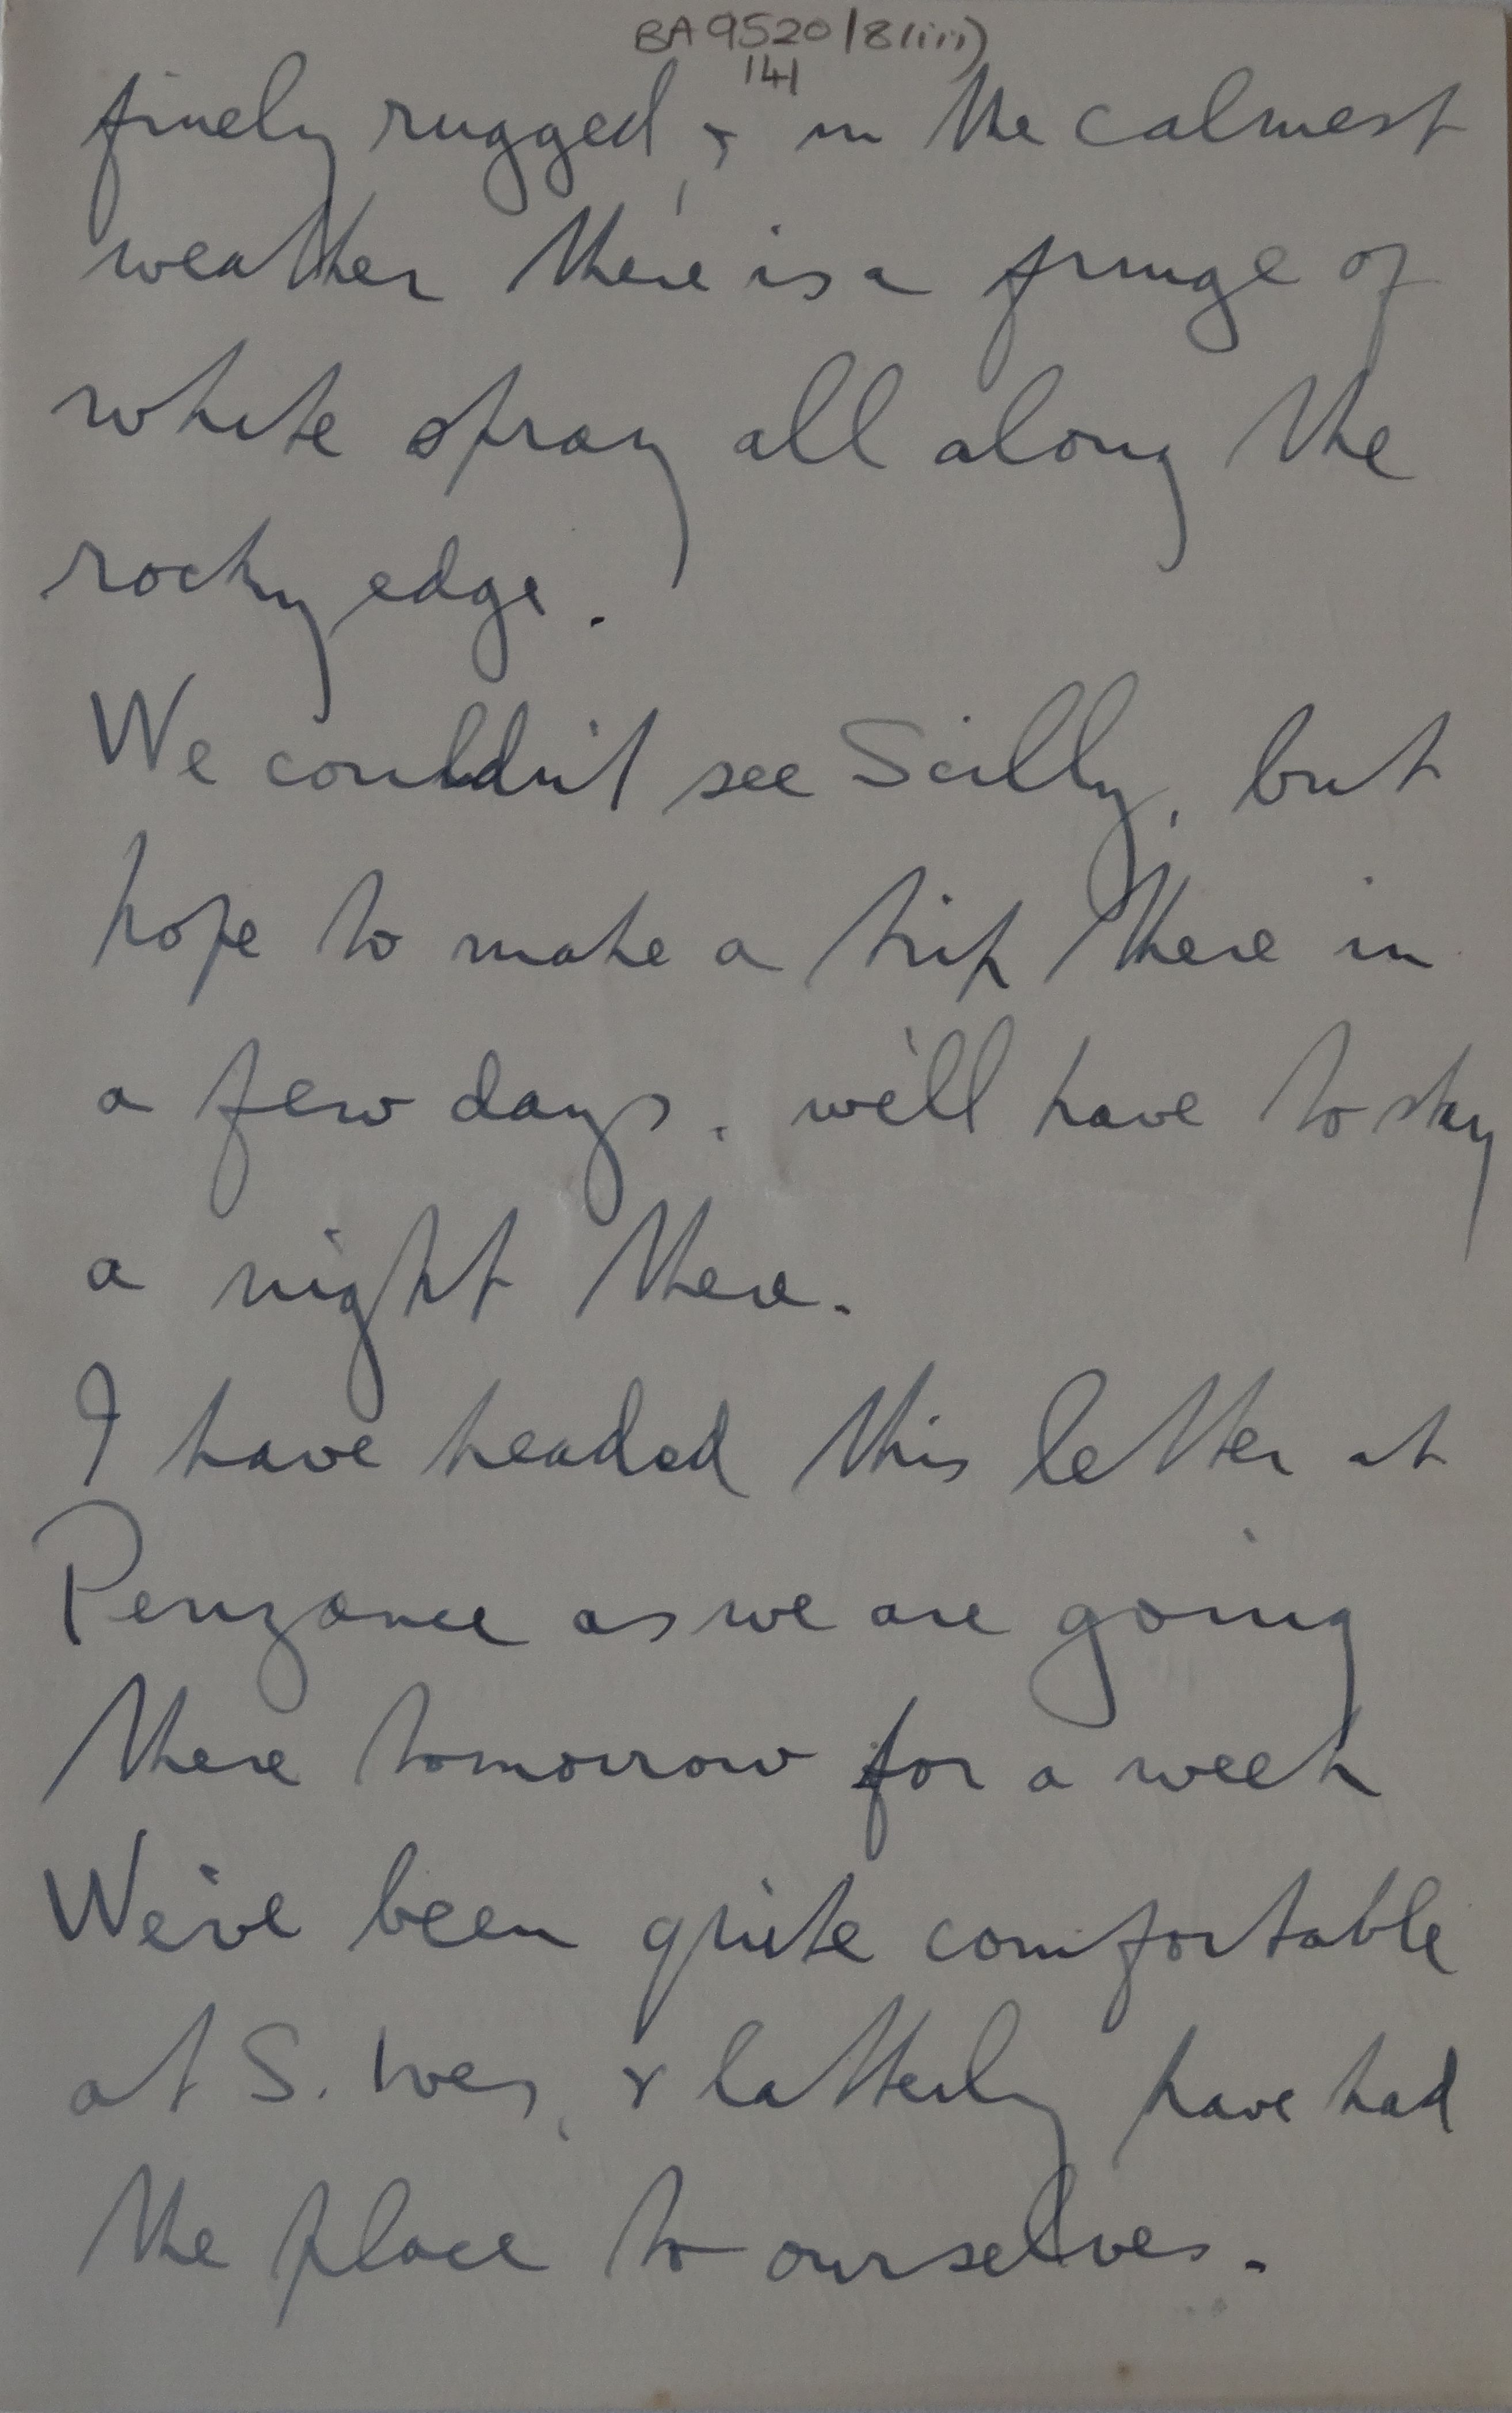 BA9520/8(iii)
141
finely rugged, & in the calmest
weather there is a fringe of
white spray all along the
rocky edge.
We couldn't see Scilly, but
hope to make a trip there in
a few days. we'll have to stay
a night there.
I have headed this letter at
Penzance as we are going
there tomorrow for a week
We've been quite comfortable
at S. Ives, & latterly have had
the place to ourselves.